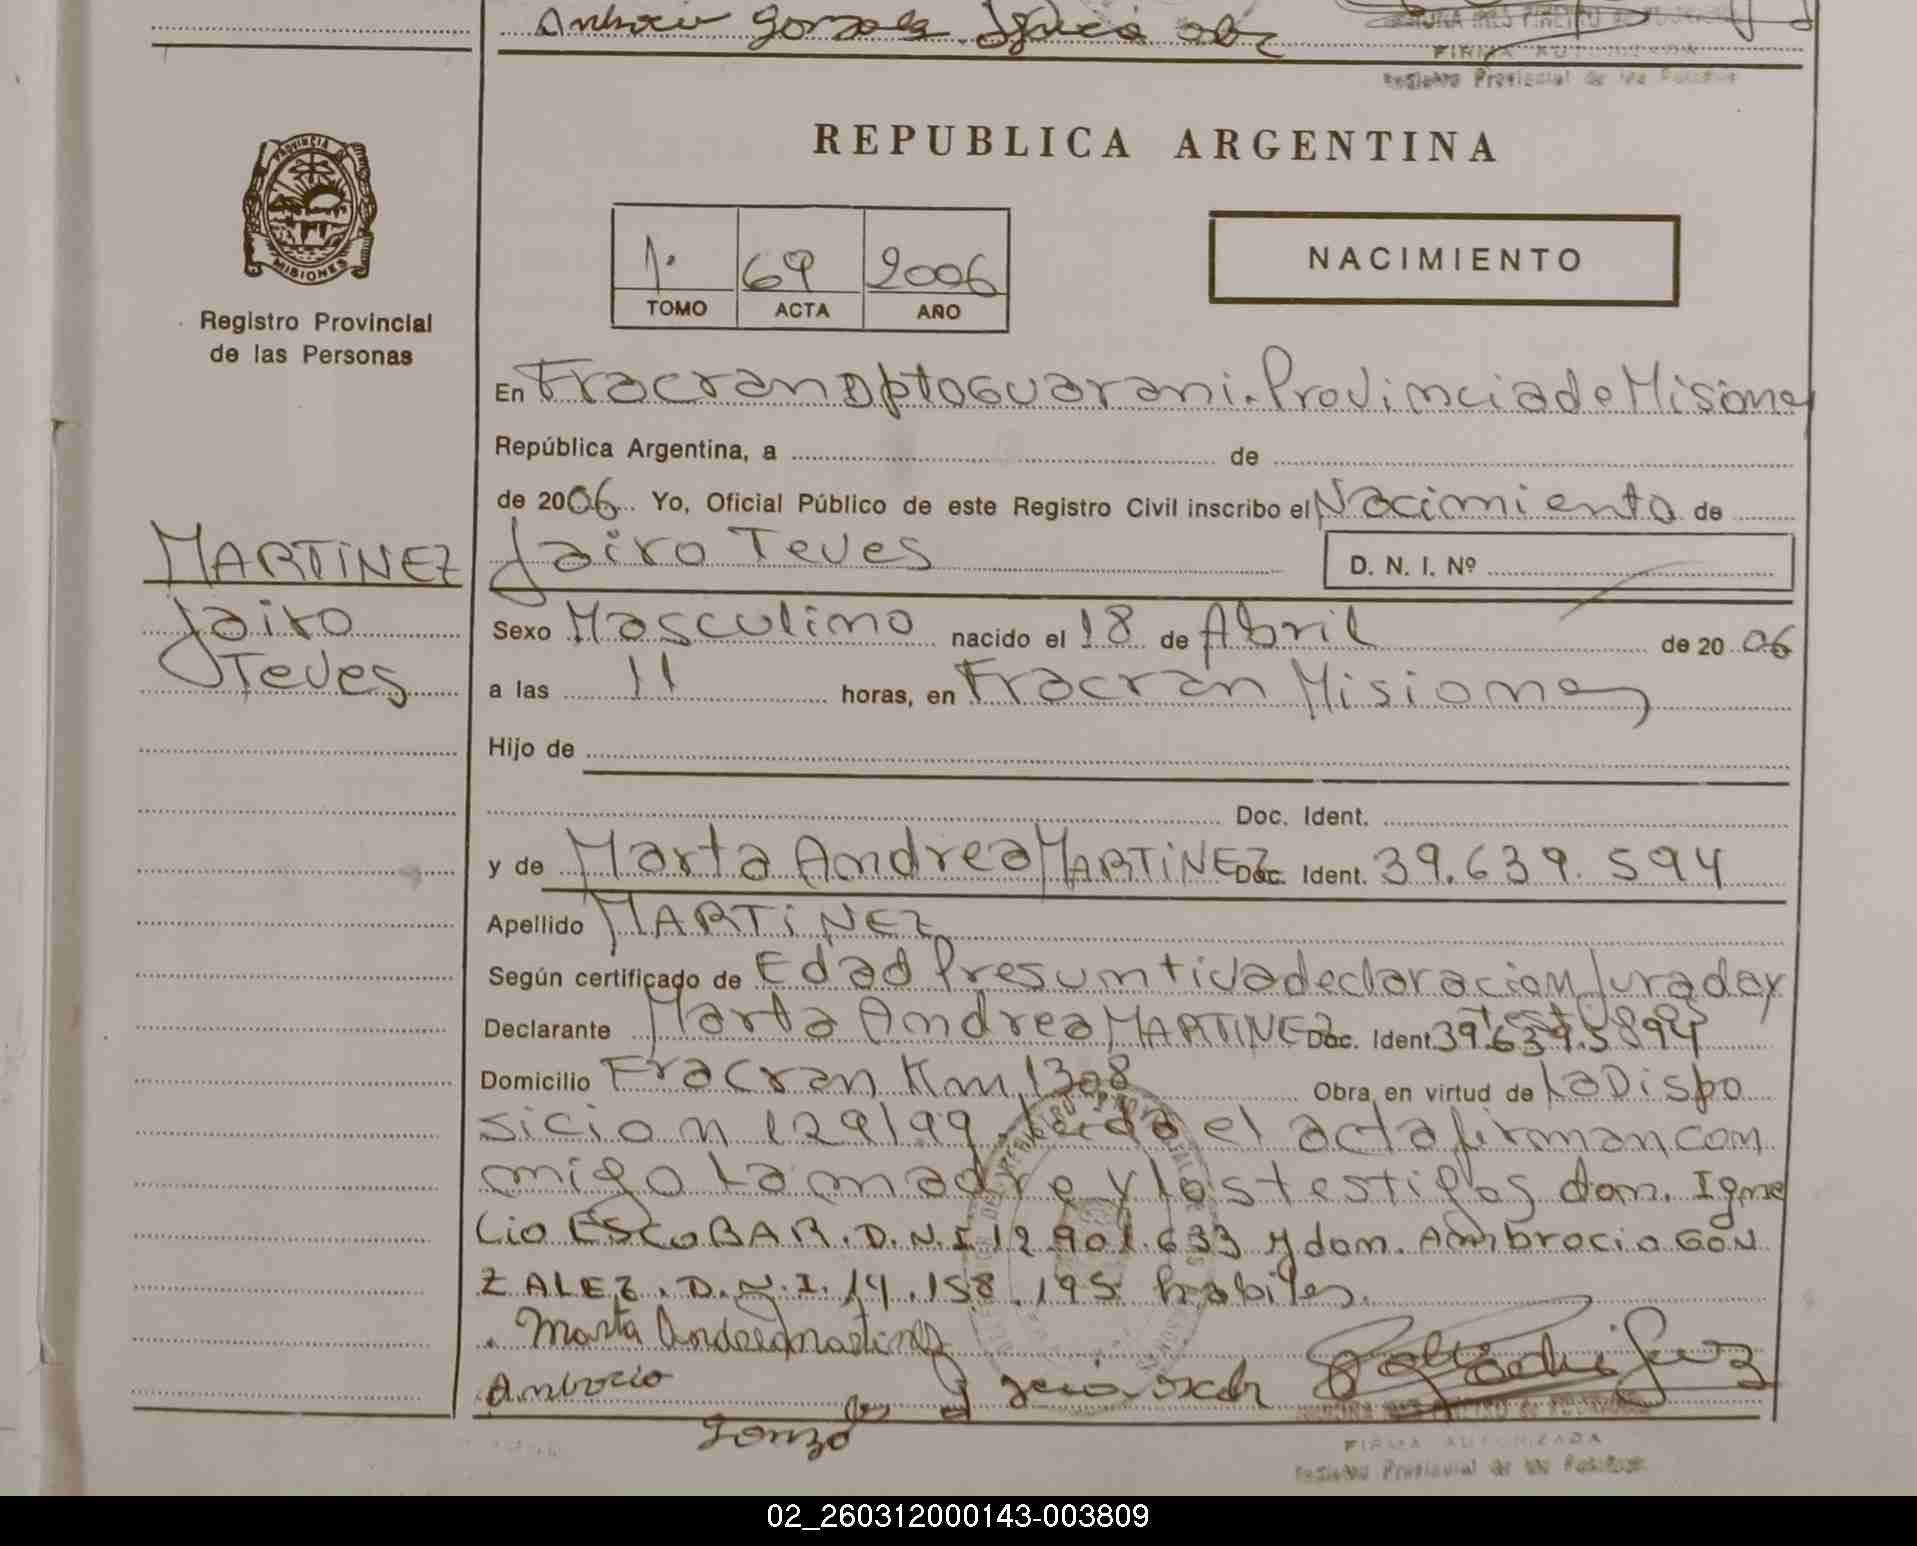 Ambrocio Gonzalez
FIRMA AUTORIZADA
Registro Provincial de las Personas
PROVINCIA DE
MISIONES
Registro Provincial
de las Personas
REPUBLICA ARGENTINA
1º 69 2006
TOMO ACTA AÑO
NACIMIENTO
En Fracran Dpto Guarani. Provincia de Misiones
República Argentina, a de
de 2006 Yo, Oficial Público de este Registro Civil inscribo el Nacimiento de
MARTINEZ
Jairo
Teves
Jairo Teves
D. N. I. Nº
Sexo Masculino nacido el 18 de Abril de 2006
a las 11 horas, en Fracran Misiones
Hijo de
Doc. Ident.
y de Marta Andrea MARTINEZ Doc. Ident. 39.639.594
Apellido MARTINEZ
Según certificado de Edad Presuntiva declaracion Jurada y
Declarante Marta Andrea MARTINEZ Doc. Ident. 39.639.594
Domicilio Fracran Km 1308 Obra en virtud de La Dispo
sicion 129/99. Leida el acta firman con
migo La madre y los testigos don. Igna
cio ESCOBAR. D.N.I 12.901.633 y don. Ambrocio GON
ZALEZ. D.N.I. 14.158.195 habiles.
Marta Andrea martinez
Ambrocio
Gonzalez
FIRMA AUTORIZADA
Registro Provincial de las Personas
02_260312000143-003809